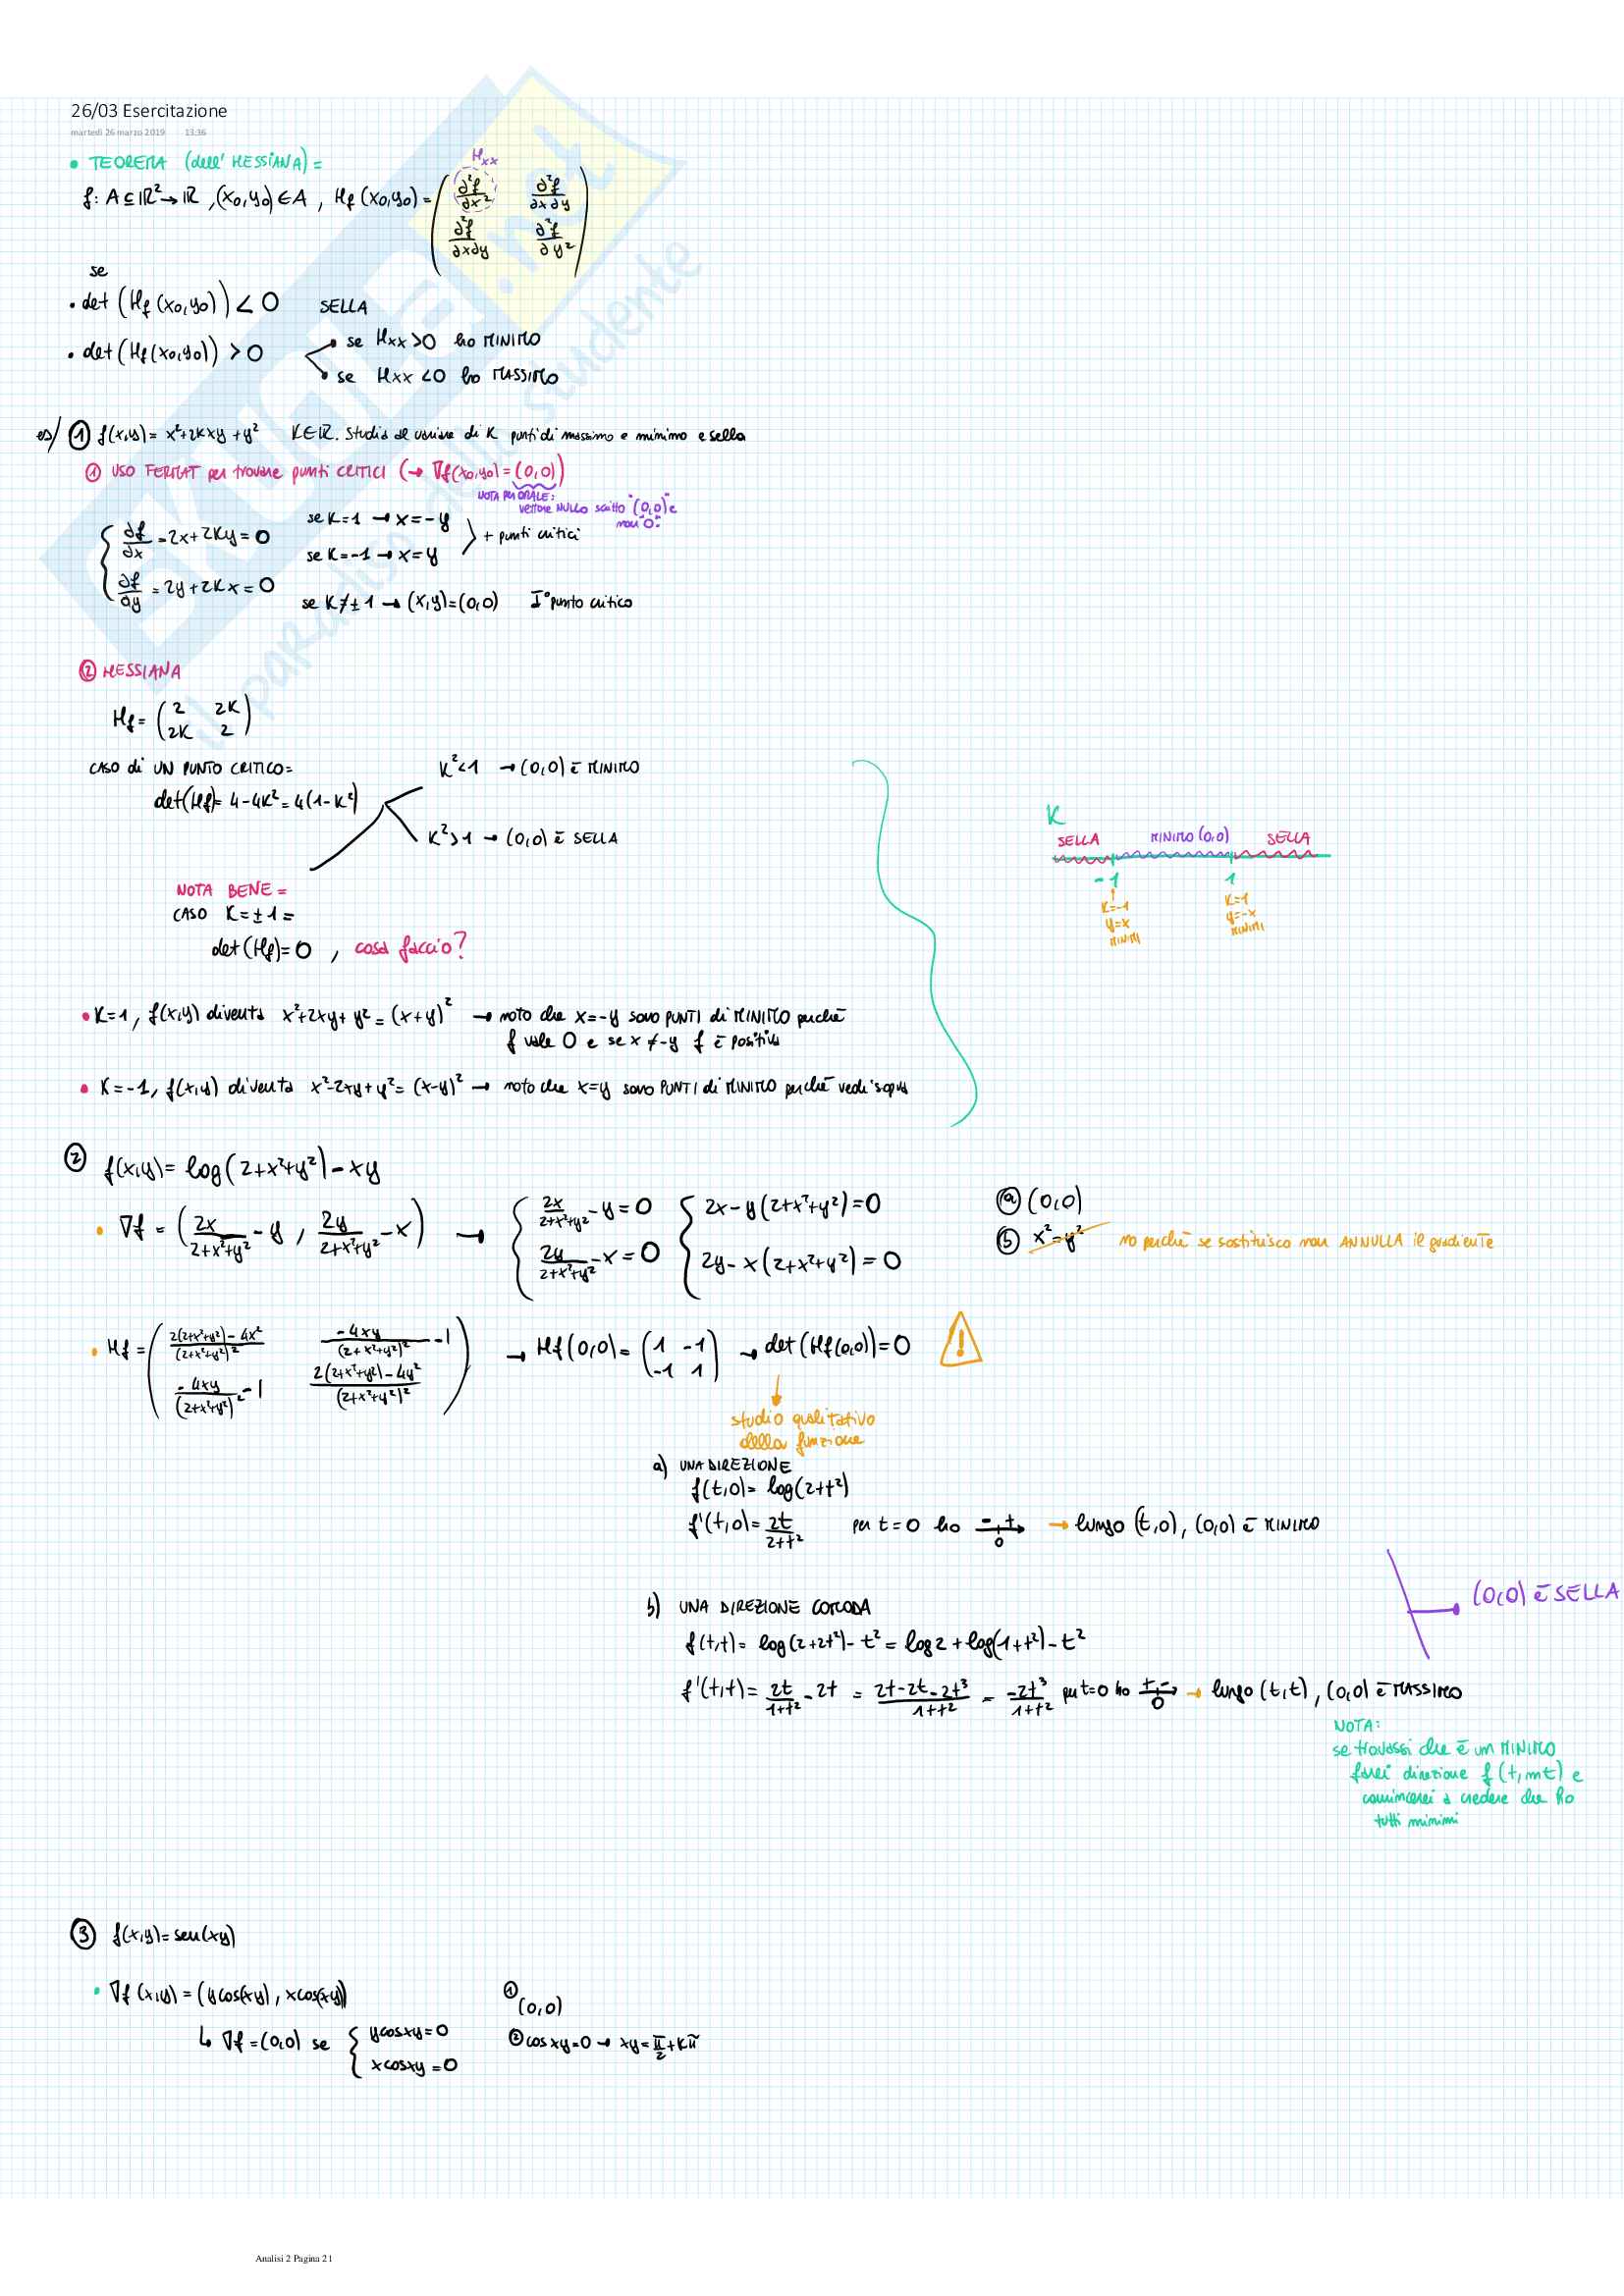 26/03 Esercitazione
martedì 26 marzo 2019 13:36
• TEOREMA (dell' HESSIANA) =
f: A⊆ℝ²→ℝ, (x₀,y₀)∈A, Hf(x₀,y₀) = ( ∂²f/∂x² ∂²f/∂x∂y
∂²f/∂x∂y ∂²f/∂y² )
Hxx
se
• det(Hf(x₀,y₀)) < 0 SELLA
• det(Hf(x₀,y₀)) > 0
• se Hxx>0 ho MINIMO
• se Hxx<0 ho MASSIMO
es/ ① f(x,y)= x²+2Kxy+y² K∈ℝ. Studia al variare di K punti di massimo e minimo e sella
① USO FERMAT per trovare punti CRITICI (→ ∇f(x₀,y₀)=(0,0))
NOTA PER ORALE:
vettore NULLO scritto "(0,0)" e
non "0".
{ ∂f/∂x = 2x+2Ky=0
∂f/∂y = 2y+2Kx=0
se K=1 → x=-y
se K=-1 → x=y
+ punti critici
se K≠±1 → (x,y)=(0,0) I° punto critico
② HESSIANA
Hf= ( 2 2K
2K 2 )
CASO di UN PUNTO CRITICO=
det(Hf)= 4-4K²=4(1-K²)
K²<1 → (0,0) è MINIMO
K²>1 → (0,0) è SELLA
NOTA BENE =
CASO K=±1 =
det(Hf)=0, cosa faccio?
K
SELLA MINIMO (0,0) SELLA
-1 1
K=-1
y=x
MINIMI
K=1
y=-x
MINIMI
• K=1, f(x,y) diventa x²+2xy+y²=(x+y)² → noto che x=-y sono PUNTI di MINIMO perché
f vale 0 e se x≠-y f è positiva
• K=-1, f(x,y) diventa x²-2xy+y²=(x-y)² → noto che x=y sono PUNTI di MINIMO perché vedi sopra
② f(x,y)= log(2+x²+y²)-xy
• ∇f = ( 2x/(2+x²+y²) -y , 2y/(2+x²+y²) -x ) → { 2x/(2+x²+y²) -y=0 { 2x-y(2+x²+y²)=0
2y/(2+x²+y²) -x=0 2y-x(2+x²+y²)=0
ⓐ (0,0)
ⓑ x²=y² no perché se sostituisco non ANNULLA il gradiente
• Hf = ( (2(2+x²+y²)-4x²)/(2+x²+y²)² -4xy/(2+x²+y²)² -1
-4xy/(2+x²+y²)² -1 (2(2+x²+y²)-4y²)/(2+x²+y²)² )
→ Hf(0,0)= ( 1 -1
-1 1 ) → det(Hf(0,0))=0 !
studio qualitativo
della funzione
a) UNA DIREZIONE
f(t,0)= log(2+t²)
f'(t,0)= 2t/(2+t²) per t=0 ho - + 0 → lungo (t,0), (0,0) è MINIMO
b) UNA DIREZIONE COMODA
f(t,t)= log(2+2t²)-t² = log2+log(1+t²)-t²
f'(t,t)= 2t/(1+t²) -2t = (2t-2t-2t³)/(1+t²) = -2t³/(1+t²) per t=0 ho + - 0 → lungo (t,t), (0,0) è MASSIMO
(0,0) è SELLA
NOTA:
se trovassi che è un MINIMO
farei direzione f(t,mt) e
comincerei a credere che ho
tutti minimi
③ f(x,y)=sen(xy)
• ∇f(x,y)=(ycos(xy), xcos(xy))
↳ ∇f=(0,0) se { ycosxy=0
xcosxy=0
① (0,0)
② cosxy=0 → xy=π/2+Kπ
SKUOLA.net
il paradiso dello studente
Analisi 2 Pagina 21